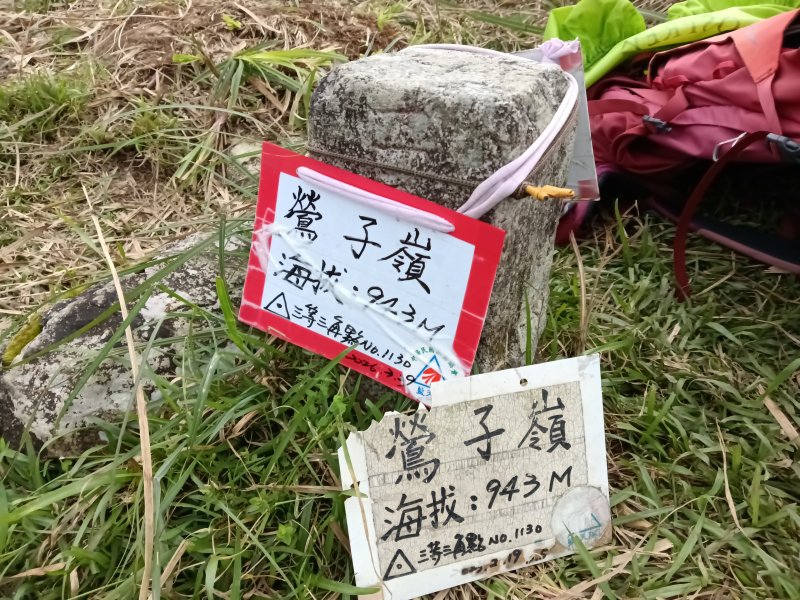 鶯子嶺
海拔：943M
△三等三角點NO.1130
鶯子嶺
海拔：943M
△三等三角點NO.1130